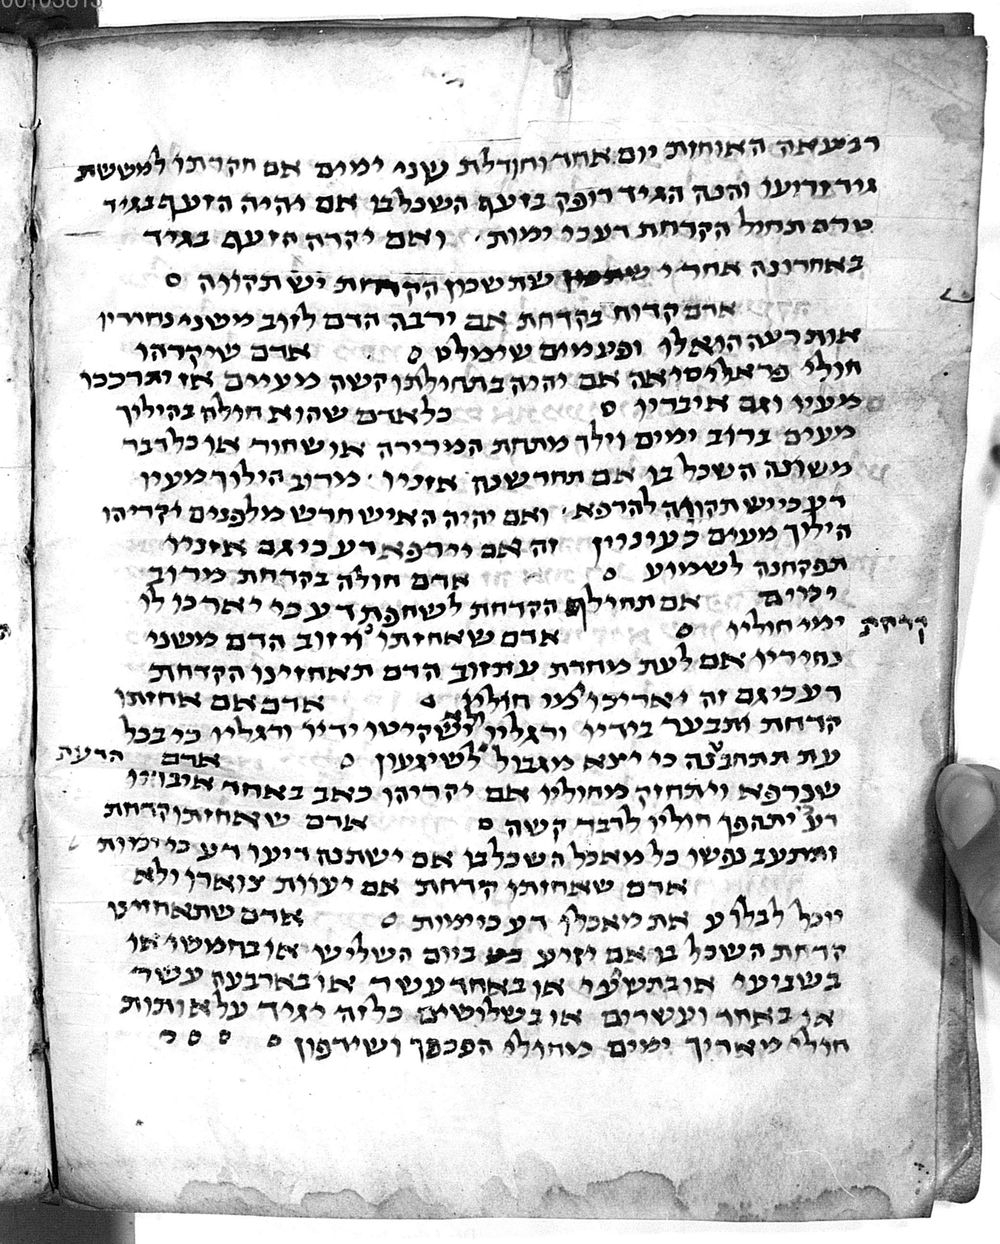 רביעאה האוחזת יום אחד וחודלת שני ימים אם חקרתו למששת
גיד זרועו והנה הגיד דופק בזעף השכל בו אם יהיה הזעף בגיד
טרם תחול הקדחת דע כי ימות ׳ ואם יקרה הזעף בגיד
באחרונה אחרי שתשכון הקדחת יש תקווה ס
אדם קדוח בקדחת אם ירבה הדם לזוב משני נחיריו
אות רעה הוא לו ופעמים שימלט ס אדם שיקרהו
חולי אם יהיה בתחולתו קשה מעיים אז יתרככו
מעיו וגם איבריו ס כל אדם שהוא חולה בהילוך
מעים ברוב ימים וילך מתחת המרירה או שחור או כל דבר
משונה השכל בו אם תחרשנה אזניו ׳ מרוב הילוך מעיו
דע כי יש תקווה להרפא ׳ ואם יהיה האיש חרש מלפנים יקריהו
הילוך מעים כעיניין זה אם יירפא דע כי גם אזניו
תפקחנה לשמוע ס אדם חולה בקדחת מרוב
ימים אם תחולף הקדחת לשחפת דע כי יאריכו לו
ימי חוליו ס אדם שאחזתו ויזוב הדם משני
קדחת
נחיריו אם לעת מחרת עת זוב הדם תאחזינו הקדחת
דע כי גם זה יאריכו ימי חוליו ס אדם אם אחזתו
קדחת ותבער בידיו ורגליו ולא ישקיטו ידיו ורגליו כי בכל
עת תתחבטנה כי יצא מגבול לשיגעון ס אדם
הדעת
שנרפא ויתחזק מחוליו אם יקריהו כאב באחד איבריו
דע יתהפך חוליו לדבר קשה ס אדם שאחזתו קדחת
ותתעב נפשו כל מאכל השכל בו אם ישתנה ריעו דע כי ימות
אדם שאחזתו קדחת אם יעוות צוארו ולא
יוכל לבלוע את מאכלו דע כי ימות ס אדם שתאחזינו
קדחת השכל בו אם יזיע ביום השלישי או בחמשי או
בשביעי או בתשיעי או באחד עשר או בארבעה עשר
או באחד ועשרים או בשלושים כל זה יגיד על אותות
חולי מאריך ימים מחולי הפכפך ושידפון ס ס ס